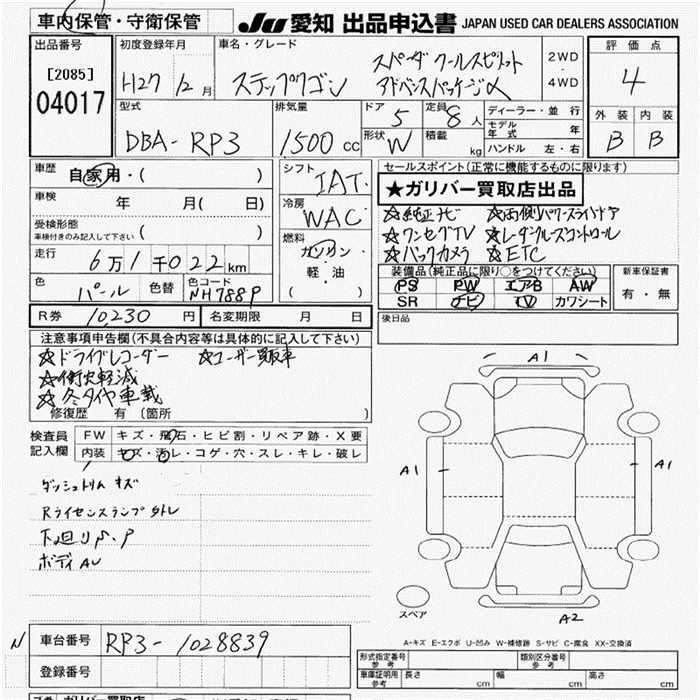 車内保管・守衛保管
JU 愛知 出品申込書 JAPAN USED CAR DEALERS ASSOCIATION
出品番号
[2085]
04017
初度登録年月
H27 12月
車名・グレード
ステップワゴン
スパーダ クールスピリット
アドバンスパッケージα
2WD
・
4WD
評価点
4
外装 内装
B B
型式
DBA-RP3
排気量
1,500 cc
ドア 5
定員 8 人
形状 W
積載 kg
ディーラー・並行
モデル年式 年
ハンドル 左・右
車歴 自家用・( )
車検 年 月( 日)
受検形態
車検付きのみ記入して下さい ( )
走行 6万1千022km
色 パール 色替 色コード NH788P
シフト IAT
冷房 WAC
燃料 ガソリン・軽・油
( )
セールスポイント(正常に機能するものに限ります)
★ガリバー買取店出品
☆純正ナビ ☆両側パワースライドドア
☆ワンセグTV ☆レーダークルーズコントロール
☆バックカメラ ☆ETC
装備品(純正品に限り○をつけてください)
PS PW エアB AW
SR ナビ TV カワシート
新車保証書
有・無
R券 10,230 円 名変期限 月 日
後日品
注意事項申告欄(不具合内容等は具体的に記入して下さい)
☆ドライブレコーダー ☆ユーザー買取車
☆衝突軽減
☆冬タイヤ車載
修復歴 有 〔箇所 〕
検査員記入欄
FW キズ・飛石・ヒビ割・リペア跡・X要
内装 キズ・汚レ・コゲ・穴・スレ・キレ・破レ
ダッシュトリム キズ
Rライセンスランプ外レ
下廻りS.P
ボディAU
A1
A1
A1
A2
スペア
A-キズ E-エクボ U-凹み W-補修跡 S-サビ C-腐食 XX-交換済
N
車台番号 RP3-1028839
登録番号
形式指定番号 参考
類別区分番号 参考
車庫証明用 参考 長さ cm 幅 cm 高さ cm